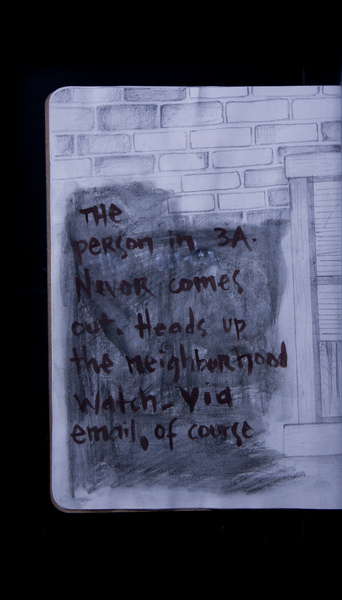 THE
person in 3A.
Never comes
out. Heads up
the neighborhood
Watch- Via
email, of course